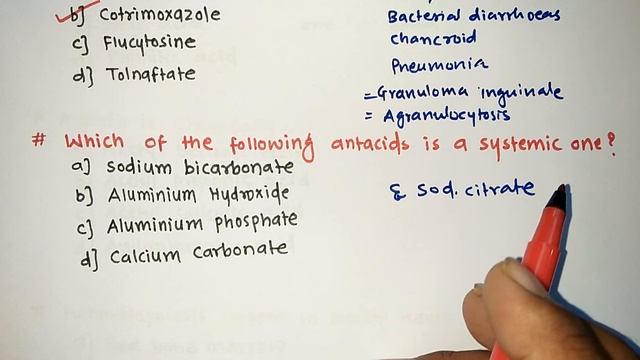 b] Cotrimoxazole
c] Flucytosine
d] Tolnaftate
Bacterial diarrhoeas
chancroid
Pneumonia
= Granuloma inguinale
= Agranulocytosis
# Which of the following antacids is a systemic one?
a] Sodium bicarbonate
b] Aluminium Hydroxide
c] Aluminium phosphate
d] Calcium Carbonate
& Sod. citrate